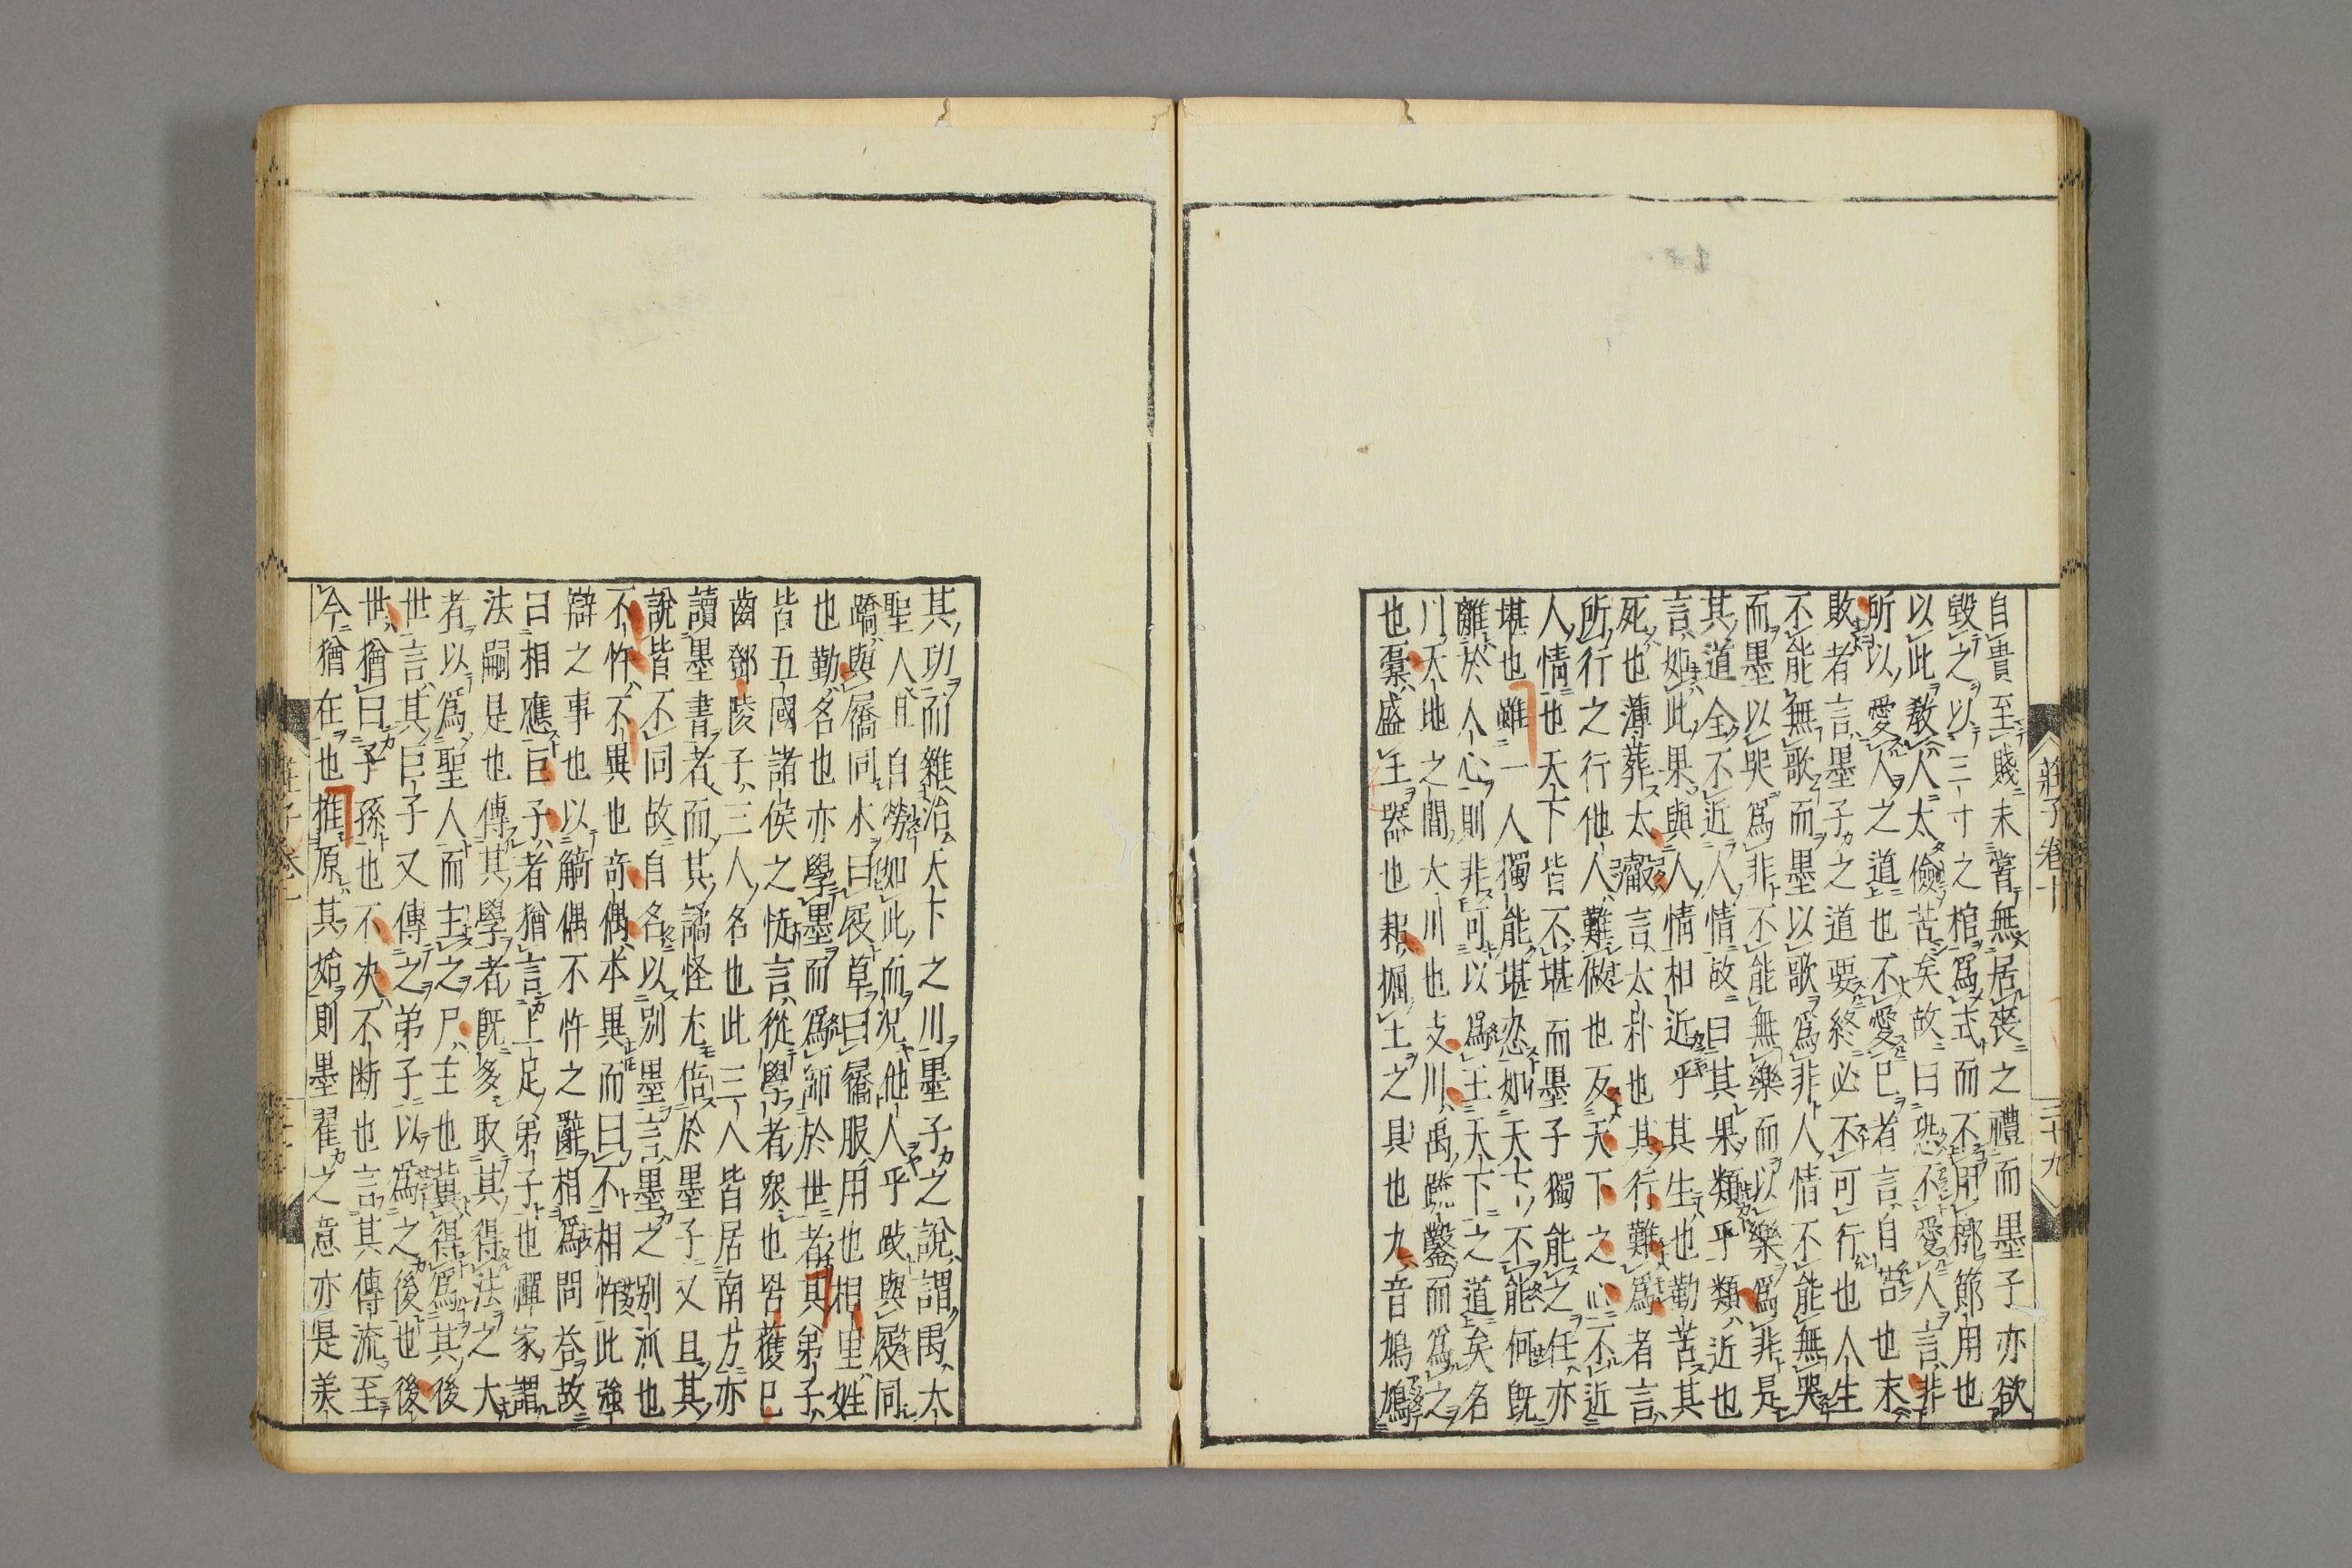 自貴至賤未嘗無居喪之禮而墨子亦欲
毀之以三寸之棺爲式而不用槨節用也
以此敎人太儉苦矣故曰恐不愛人言非
所以愛人之道也不愛己者言自苦也未
敗者言墨子之道要終必不可行也人生
不能無歌而墨以歌爲非人情不能無哭
而墨以哭爲非不能無樂而以樂爲非是
其道全不近人情故曰其果類乎類近也
言如此果與人情相近乎其生也勤苦其
死也薄葬太瀫言太朴也其行難爲者言
所行之行他人難做也反天下之心不近
人情也天下皆不堪而墨子獨能之任亦
堪也雖一人獨能堪忍如天下不能何旣
離於人心則非可以爲王天下之道矣名
川天地之間大川也支川禹疏鑿而爲之
也槖盛土器也耜掘土之具也九音鳩鳩
莊子卷十
三十九
其功而雜治天下之川墨子之說謂禹太
聖人且自勞如此而况他人乎跂與屐同
蹻與屩同木曰屐草曰屩服用也相里姓
也勤名也亦學墨而爲師於世者其弟子
皆五國諸侯之徒言從學者衆也若獲已
齒鄧陵子三人名也此三人皆居南方亦
讀墨書者而其譎怪尤倍於墨子又且其
說皆不同故自名以別墨言墨之別派也
不忤不異也奇偶本異而曰不相忤此強
辯之事也以觭偶不忤之辭相爲問答故
曰相應巨子者猶言上足弟子也禪家謂
法嗣是也傳其學者旣多取其得法之大
者以爲聖人而主之尸主也冀得爲其後
世言其巨子又傳之弟子以爲之後也後
世猶曰子孫也不决不断也言其傳流至
今猶在也推原其始則墨翟之意亦是美